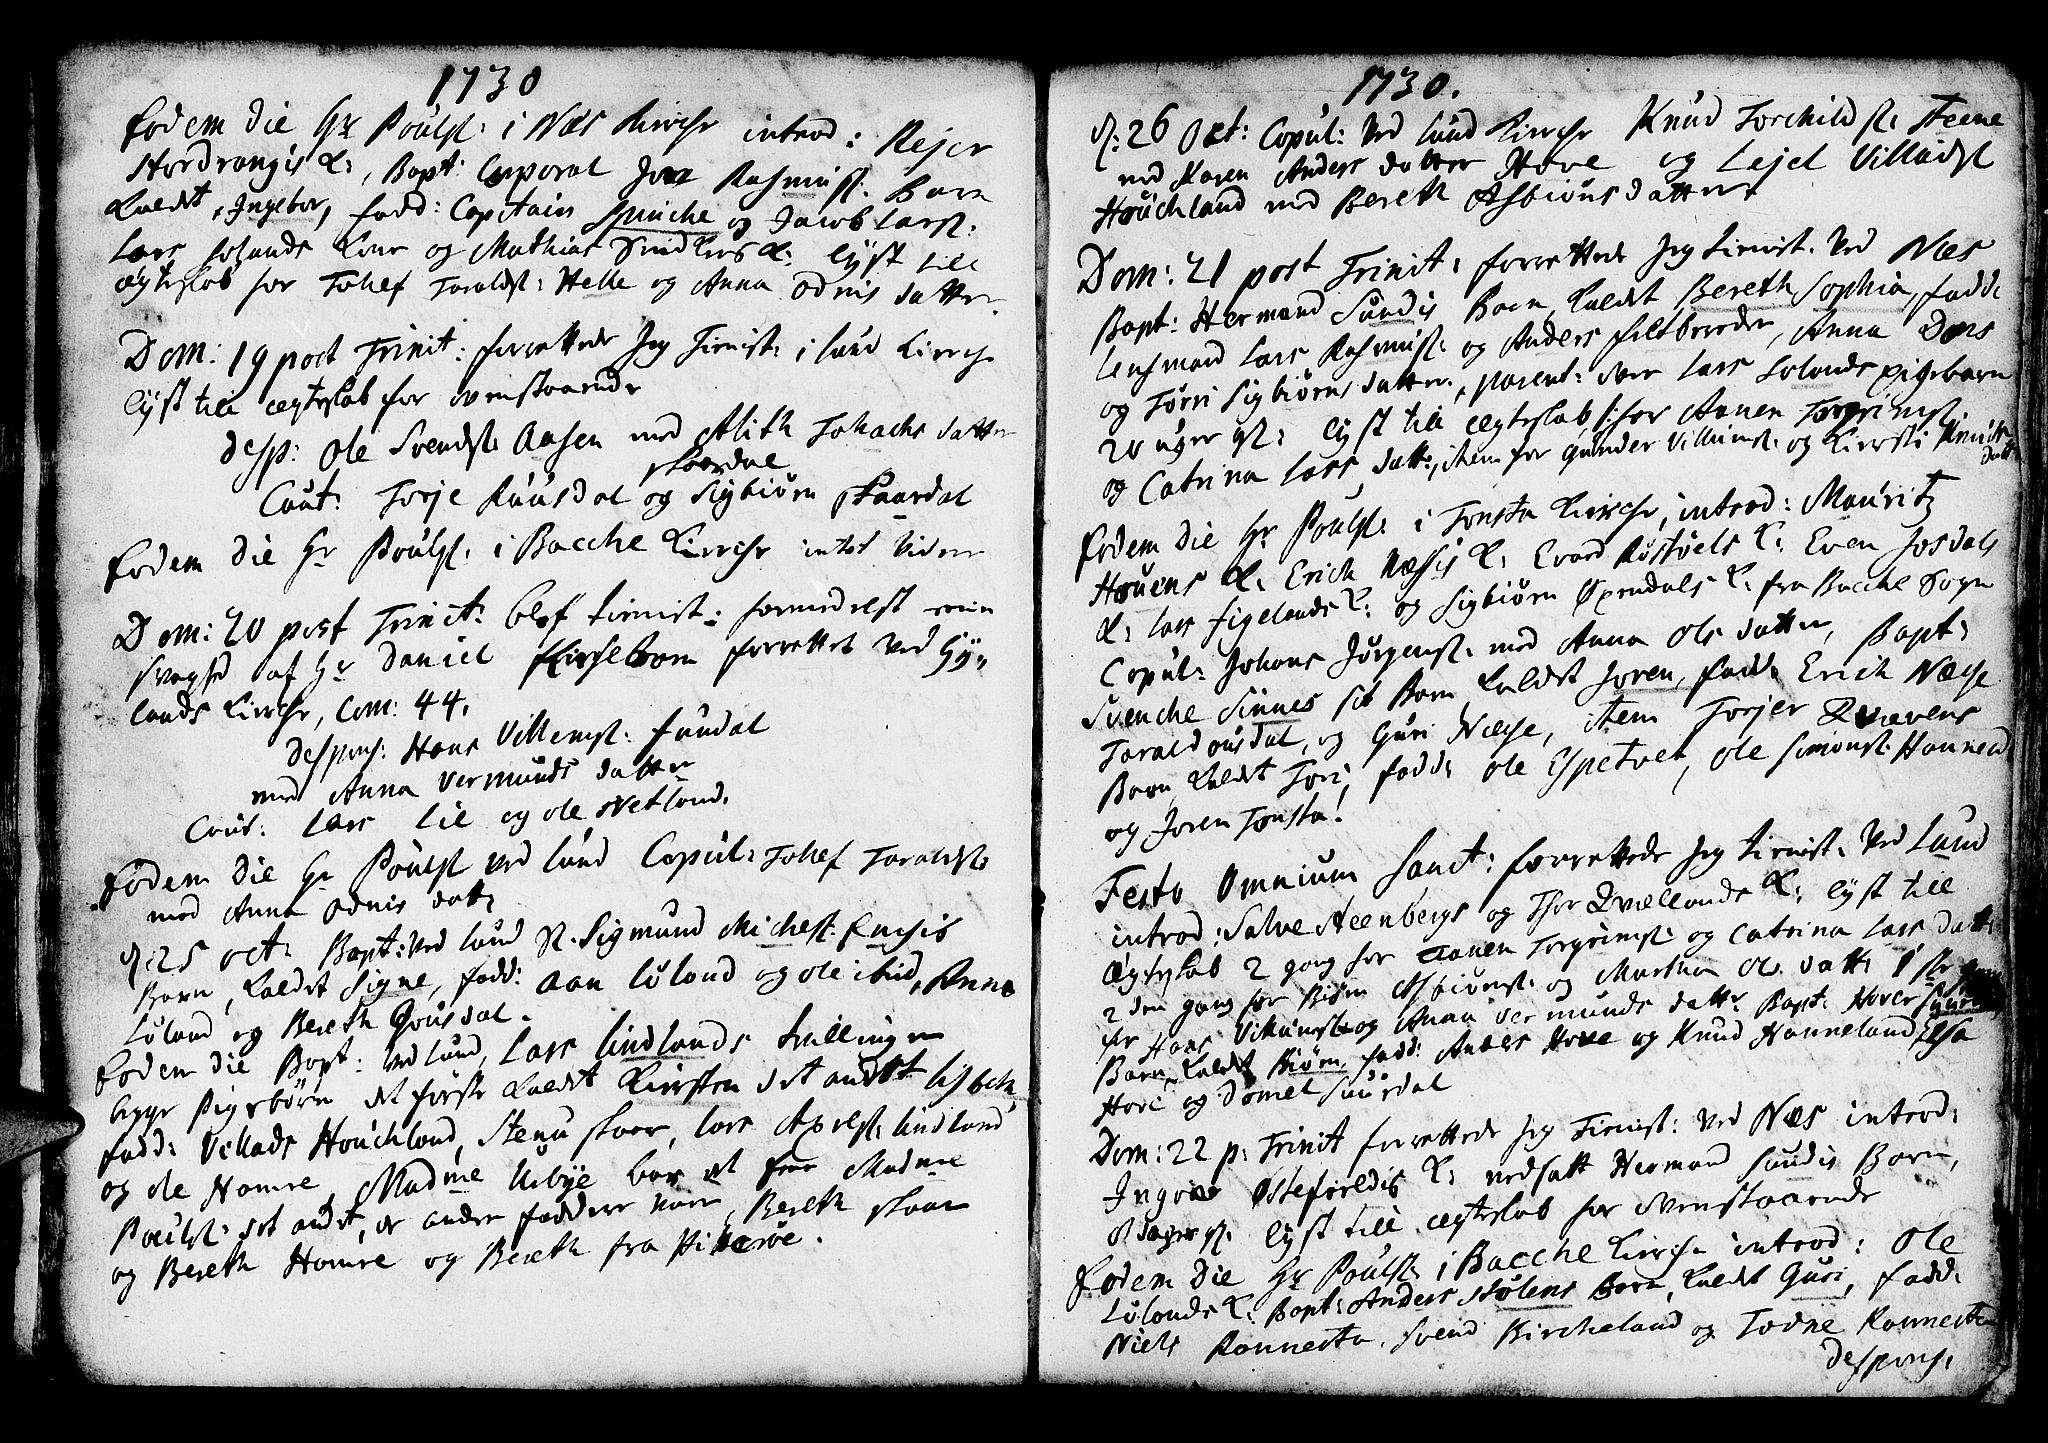 1730
Eodem die Hr Poulst: i Næs Kirche introd: Rejer
Hordrangis K:, Bapt: Corporal Jon Rasmust. Barn
kaldet, Ingebor, fadd: Capitain Smiche og Jacob Larst:
Lars Hovlands Kone og Mathias Smidkiers K: lyst till
ægteskab for Tollef Taraldst: Helle og Anna Odnis datter
Dom: 19 post Trinit: forrettede Jeg Tienist: i Lund Kirche
lyst till ægteskab for ovenstaaende
desp: Ole Svendst: Aasen med Alith Tollachs datter
Caut: Torje Ruusdal og Sigbiørn Skaardal
Skaardal
Eodem die Hr Poulst: i Bacche Kirche intet videre
Dom: 20 post Trinit: blef Tienist: formedelst min
svaghed af Hr Daniel forrettet ved Gy-
lands Kirche, Com: 44.
despons: Hans Villumst: Fundal
med Anna Vermunds datter
Caut: Lars Lie og Ole Netland.
Eodem die Hr Poulst ved Lund Copul: Tollef Taraldst:
med Anna Odnis datt:
d: 25 Oct: Bapt: ved Lund Sigmund Michelst: Eigis
Barn, kaldet Signe, fadd: Aan Løland og Ole ibid, Anna
Løland og Bereth Gousdal.
Eodem die Bapt: ved Lund, Lars Lindlands Tvillinger
begge Pigebørn det første kaldet Kiersten det andet Lisbeth
fadd: Villads Houchland, Stenu Skaar, Lars Axelst: Lindland
og Ole Homre, Madme Urbye bar et frem Madme
Poulst: det andet, de andre faddere vare, Bereth Skaar
og Bereth Homre og Bereth fra Hi
1730.
d: 26 Oct: Copul: ved Lund Kirche Knud Torchildst: Steene
med Karen Anders datter Hove og Lejel Villadst
Houchland med Bereth Asbiøns datter
Dom: 21 post Trinit: forrettede Jeg Tienist: ved Næs
Bapt: Hermand Sundis Barn, kaldet Bereth Sophia, fadd:
Lensmand Lars Rasmust: og Anders Feltbereder, Anna Dons
og Torri Sigbiørns datter, parent: over Lars Hovlands pigebarn
20 uger gl: lyst till ægteskab for Aanen Torgrimst:
og Catrina Lars datt:, item for Gunder Villumst: og Kiersti Knuds
datt:
Eodem die Hr Poulst: i Tonstad Kirche, introd: Mauritz
Houens K: Erich Næssis K: Evard Røstøels K: Even Josdals
K: Lars Figelands K: og Sigbiørn Øxendals K: fra Bacche Sogn
Copul: Johans Jørgenst: med Anna Ols datter, Bapt:
Svenche Sinnes sit Barn kaldet Joren, fadd: Erich Næsse
Tarald Ousdal, og Guri Næsse, item Torjer Qvævens
Barn kaldet Tori, fadd: Ole Espetvet, Ole Simonst: Haunen
og Joren Tonsta!
Festo Omnium Sanct: forrettede Jeg Tienist: ved Lund
introd: Salve Steenbergs og Thor Qvællands K: lyst till
Ægteskab 2 gang for Aanen Torgrimst: og Catrina Lars datt:
2den gang for Biørn Asbiørnst: og Martha Ols datt: 1ste gang
for Hans Villumst: og Anna Vermunds datter Bapt: Haver
Barn, kaldet Biørn, fadd: Anders Hove og Knud Hanneland, Elsa
Hove og Domel Suurdal
Dom: 22 p: Trinit forrettede Jeg Tienist: ved Næs introd:
Ingvar Østefieldis K: nedsatt Hermand Sundis Barn,
8 dager gl: lyst till ægteskab for ovenstaaende
Eodem die Hr Poulst: i Bacche Kirche introd: Ole
Lølands K: Bapt: Anders Stølens Barn, kaldet Guri, fadd:
Niels Ronnesta, Svend Bircheland og Todne Ronnesta
despons: